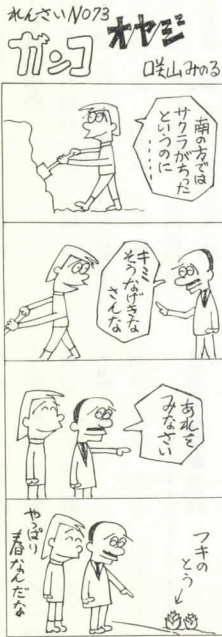 れんさいNO73
ガンコ
オヤジ
咲山みのる
南の方では
サクラがちった
というのに
キミ
そうなげきな
さんな
あれを
みなさい
フキの
とう
やっぱり
春なんだな